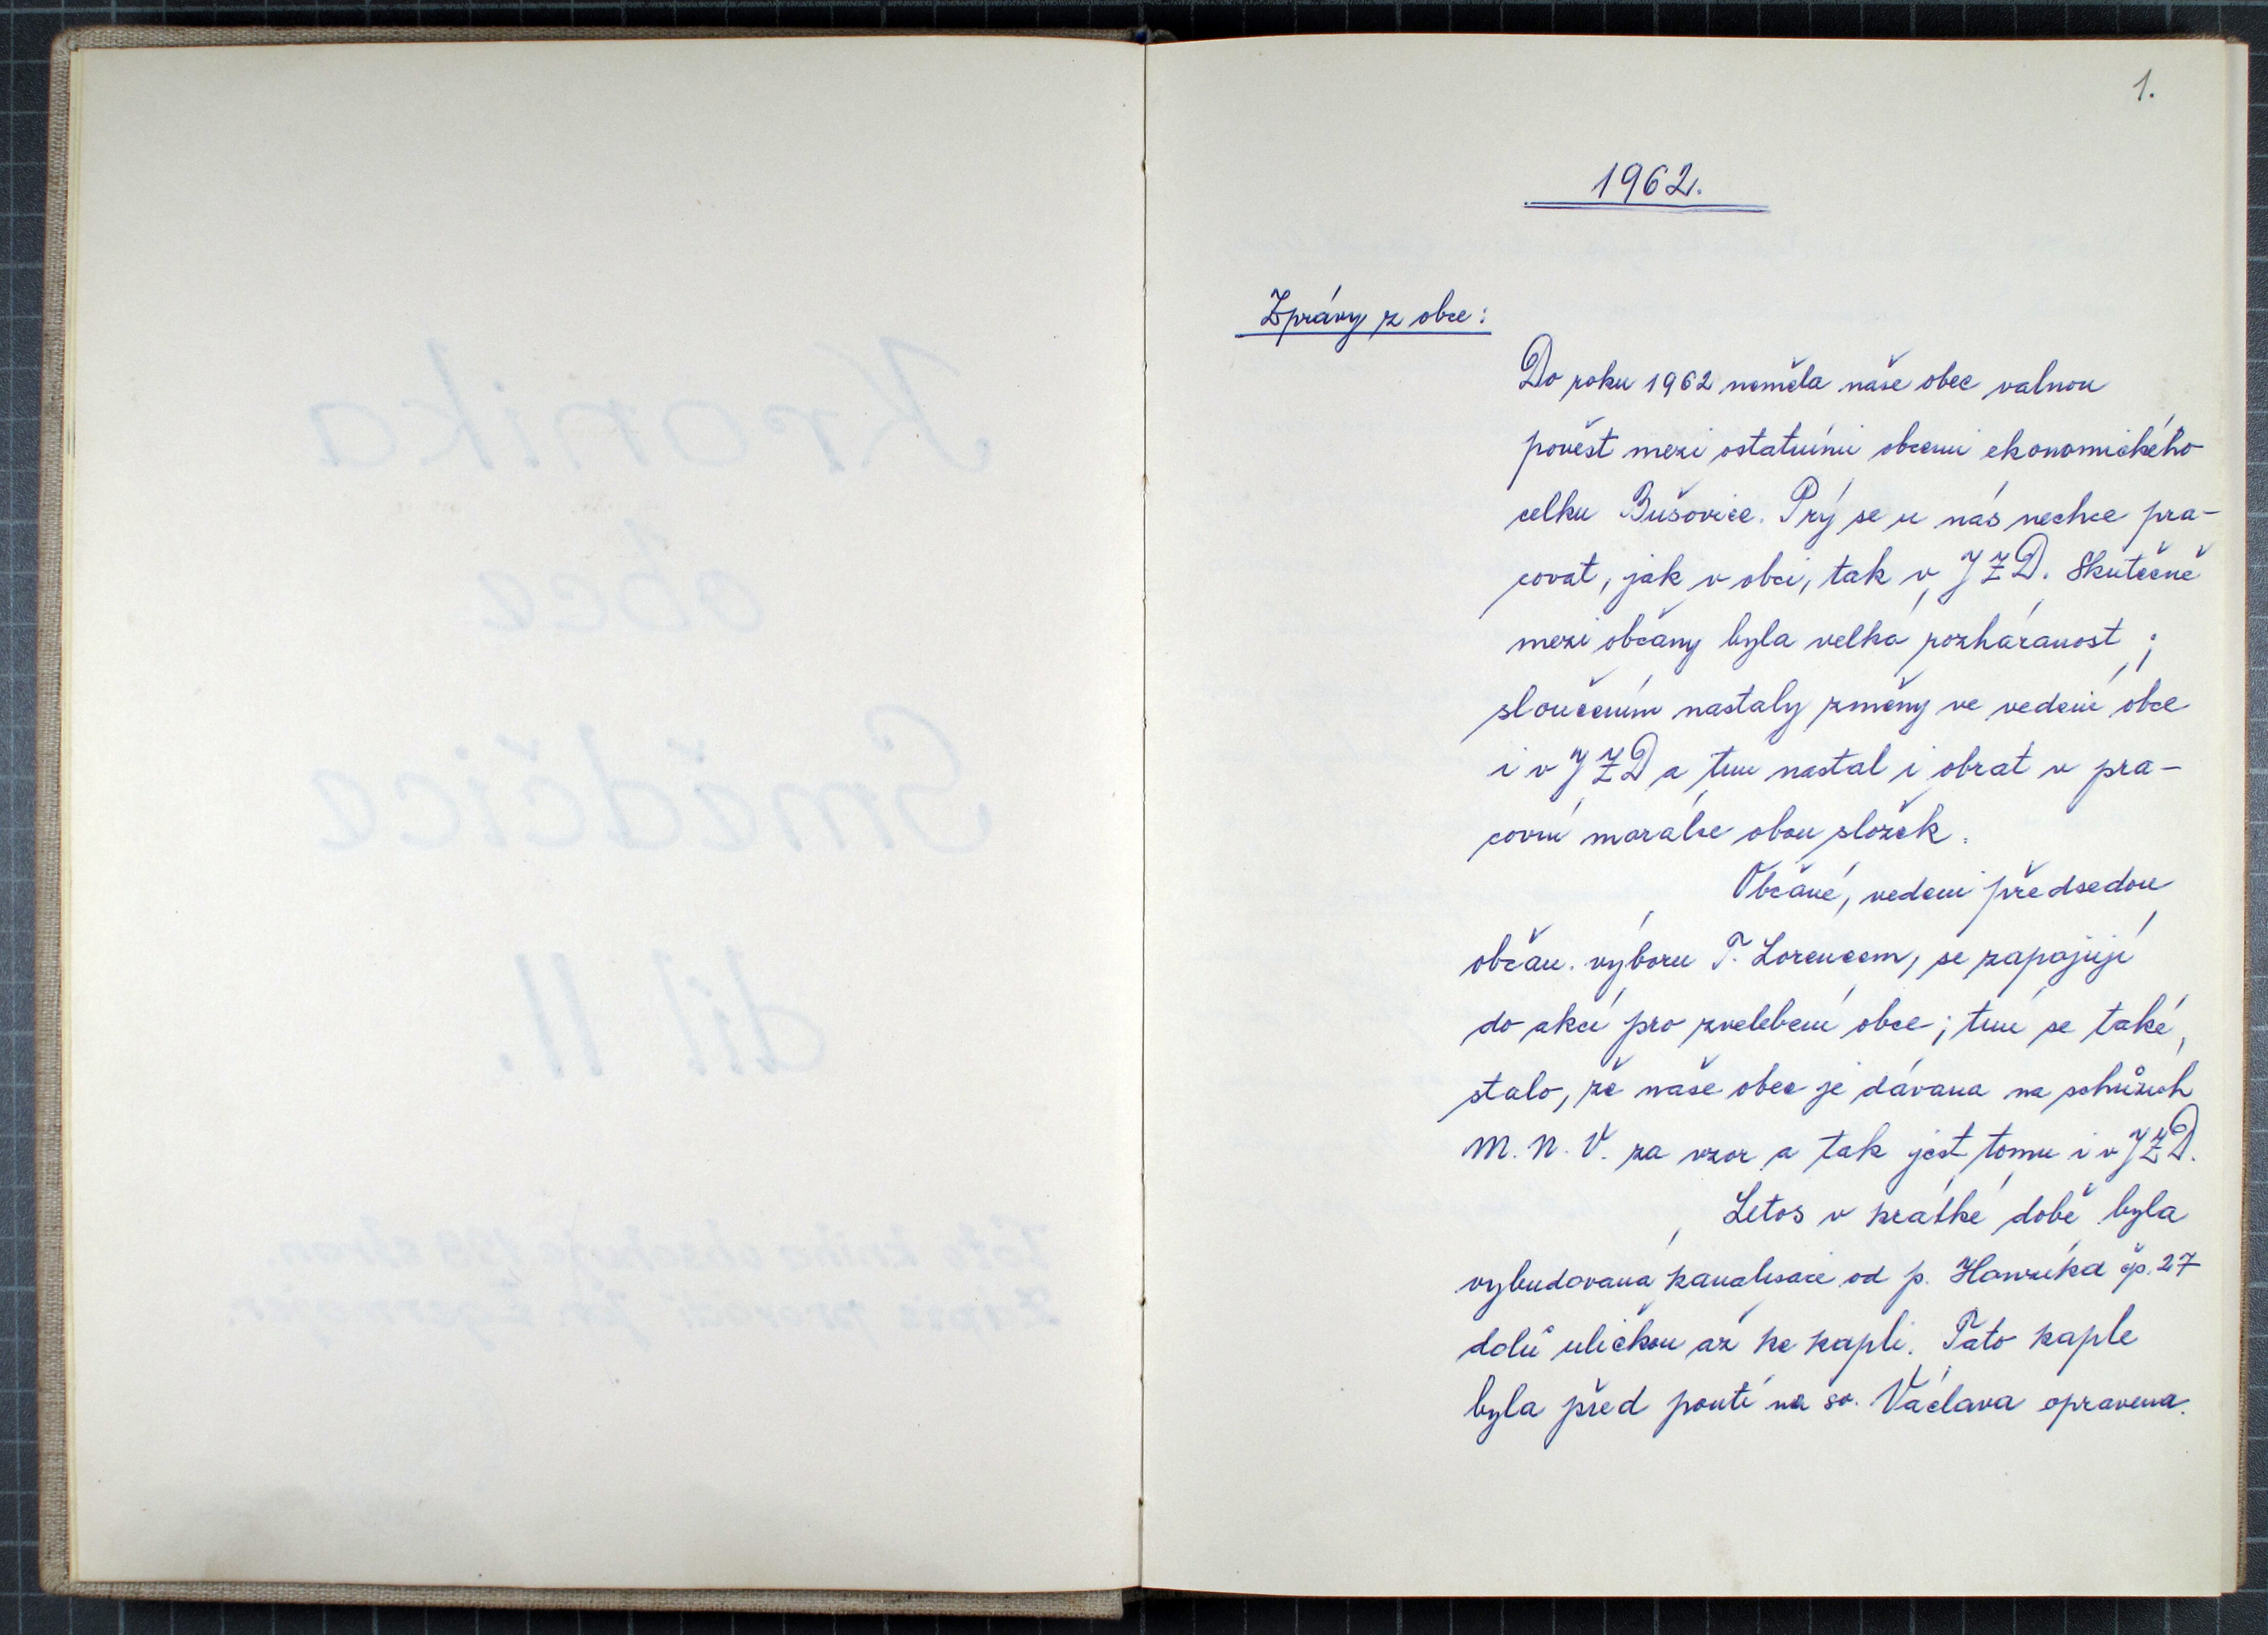 Kronika
obce
Smědčice
díl II.
Tato kniha obsahuje stran.
Zápis provádí
1.
1962.
Zprávy z obce:
Do roku 1962 neměla naše obec valnou
pověst mezi ostatními obcemi ekonomického
celku Bušovice. Prý se u nás nechce pra-
covat, jak v obci, tak v JZD. Skutečně
mezi občany byla velká rozháranost;
sloučením nastaly změny ve vedení obce
i v JZD a tím nastal i obrat v pra-
covní morálce obou složek.
Občané, vedeni předsedou
občan. výboru F. Lorencem, se zapojují
do akcí pro zvelebení obce; tím se také
stalo, že naše obec je dávána na schůzích
M. N. V. za vzor a tak jest tomu i v JZD.
Letos v krátké době byla
vybudovaná kanalisace od p. čp. 27
dolů uličkou až ke kapli. Tato kaple
byla před poutí na sv. Václava opravena.